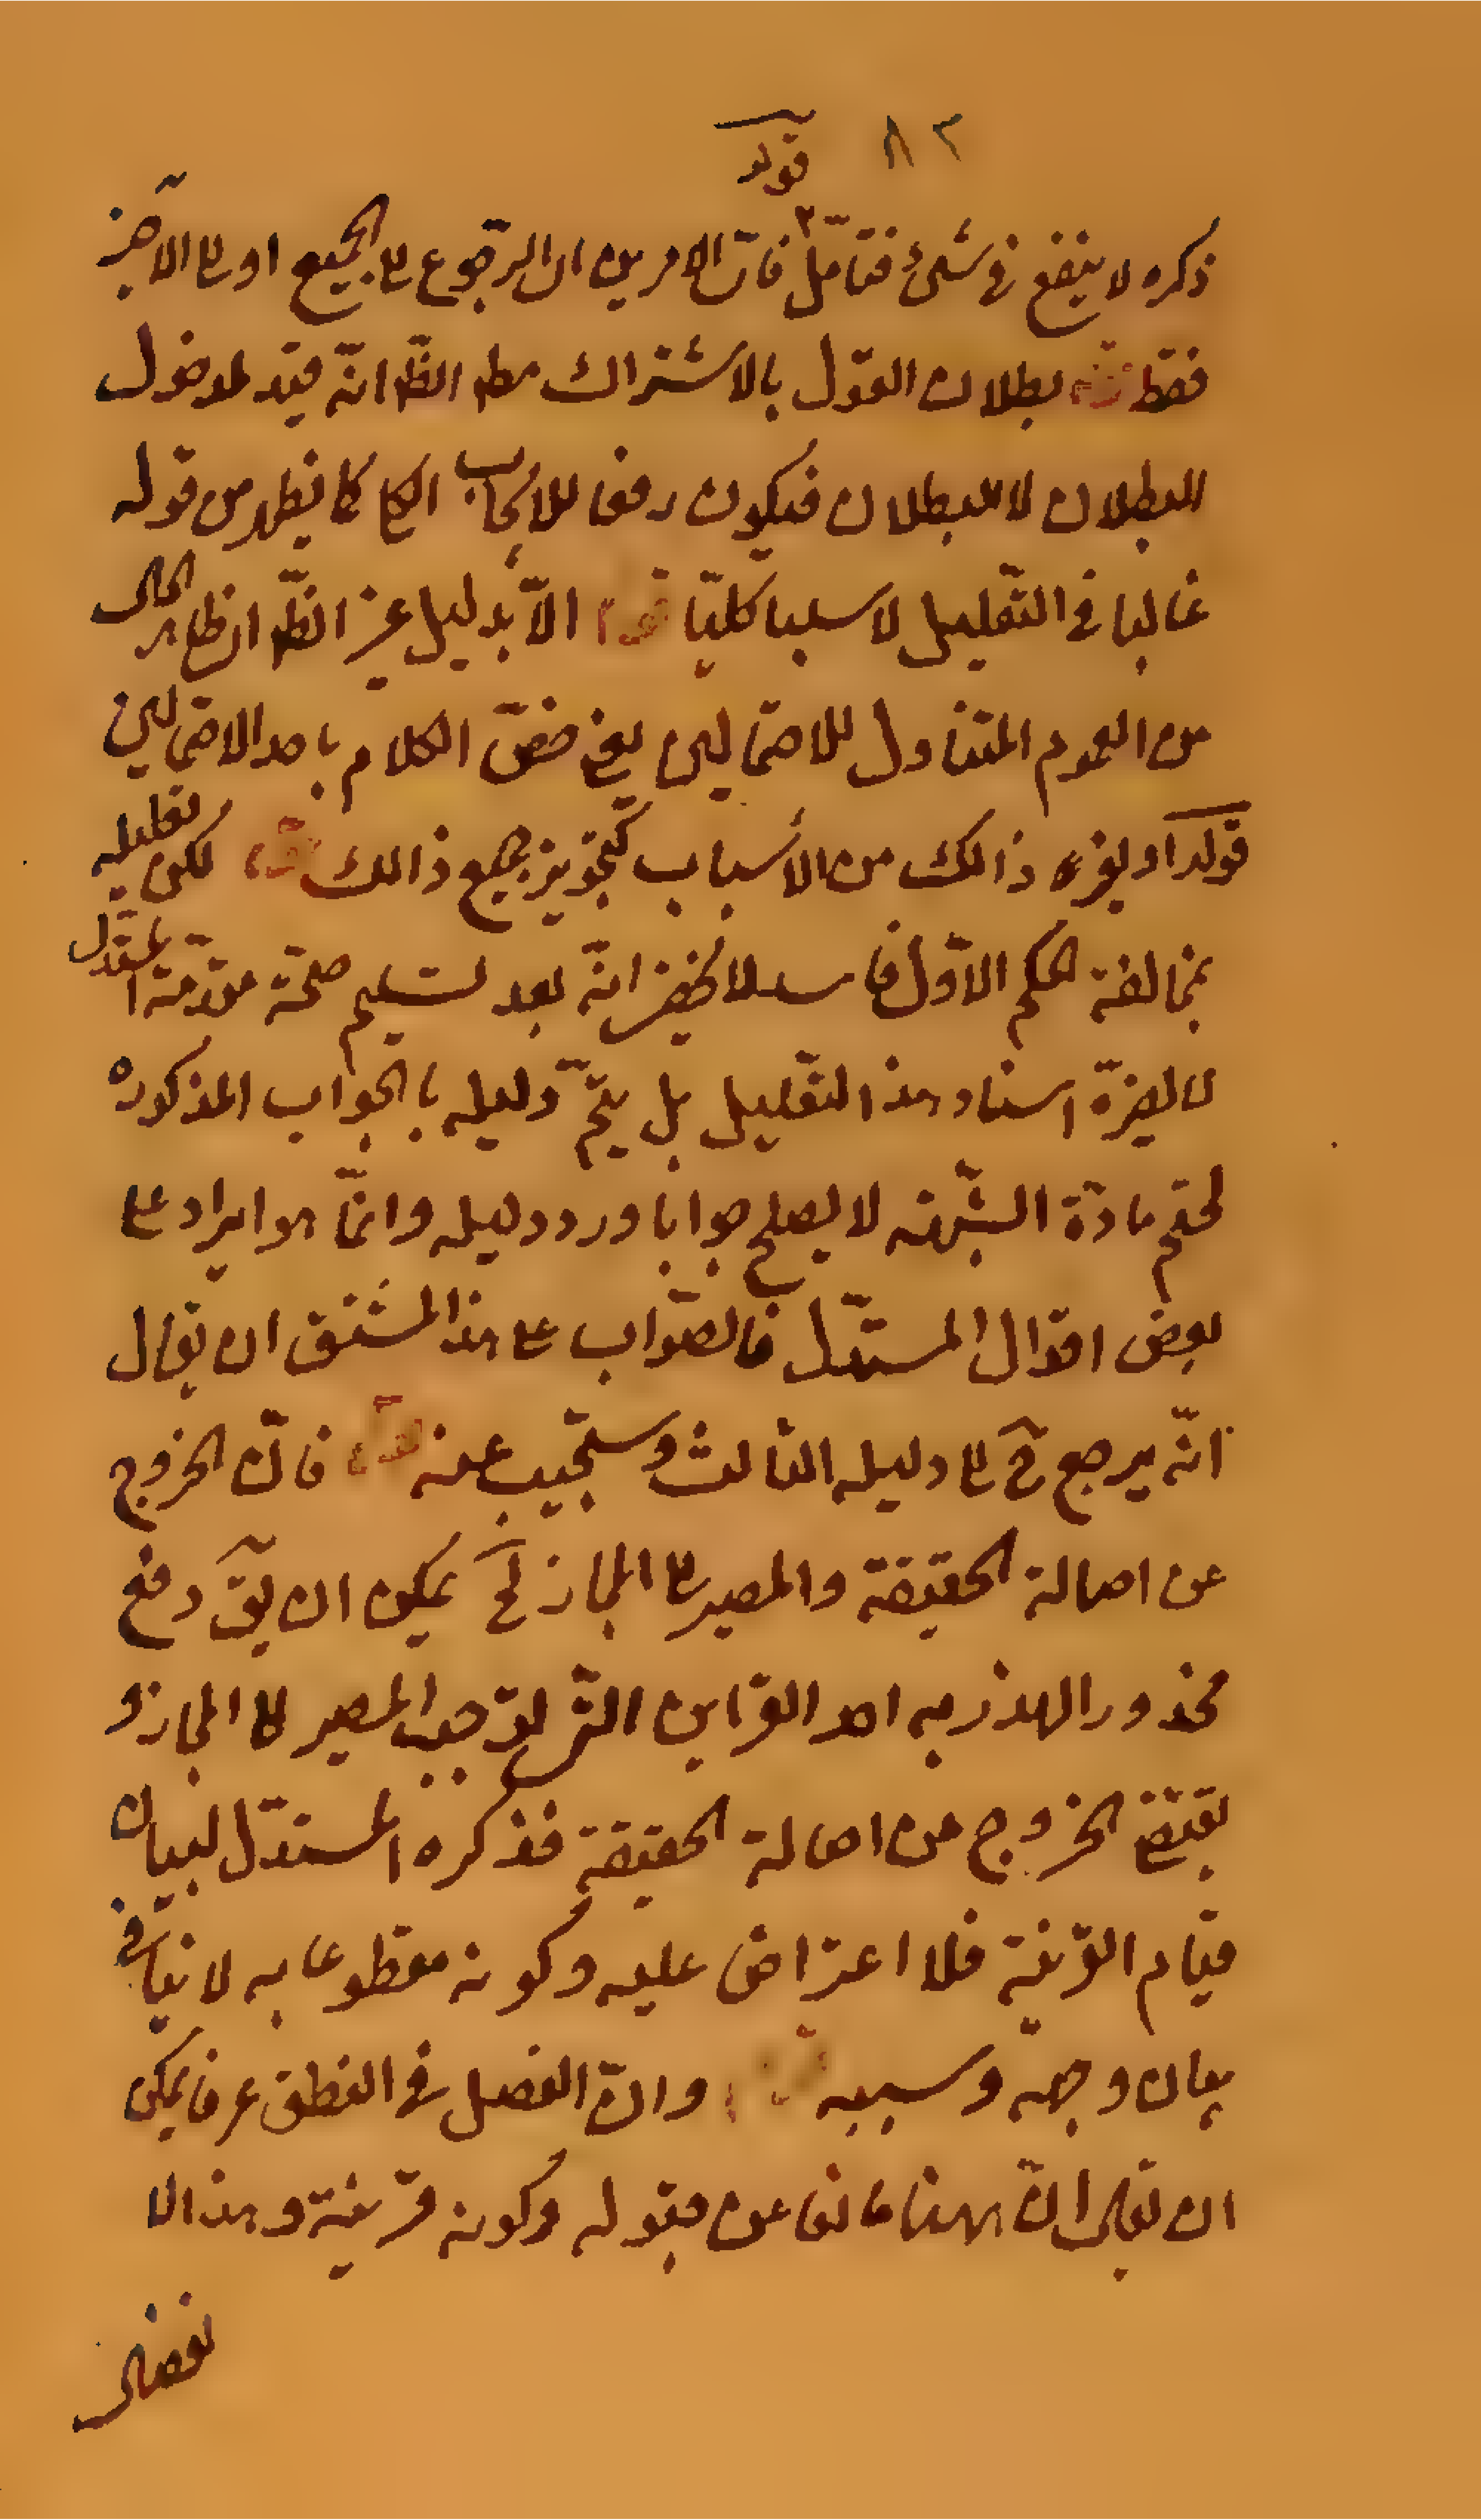 ٨٢
قوله
ذكره لا ينفع في شئ فتأمّل ٣ فانّ الامرين ان الرجوع الى الجميع او الى الاخيرة
فقط قوله بطلان القول بالاشتراك مطلقا الظّ انّه قيد لمدخول
البطلان لا للبطلان فيكون رفعا للايجاب الكلي كما يظهر من قوله
غالبا في التعليل لا سلبا كليّا قوله الّا بدليل غير الظّ ان ظاهر الحال
من العموم المتناول للاحتمالين يعني خصّ الكلام باحد الاحتمالين
قوله او لغير ذالك من الأسباب كتجويز جميع ذالك قوله لكن تعليله
بمخالفة الحكم الاوّل فاسد لا يخفى انّه بعد تسليم صحّة مقدّمة المستدل
لا يضرّه اسناد هذا التعليل بل يتمّ دليله بالجواب المذكوره
لحتم مادّة الشّبهة لا يصلح جوابا ورد دليله وانّما هو ايراد على
بعض اقوال المستدّل فالصّواب على هذا لمشتق ان يقال
انّه يرجع ح الى دليله الثالث وستجيب عنه قوله فانّ الخروج
عن اصالة الحقيقة والمصير الى المجاز لخ يمكن ان يقّ دفع
محذور الهذرية احد القراين التي توجب المصير الى المجاز و
يقتضي الخروج من اصالة الحقيقة فذكره المستدّل لبيان
قيام القرينة فلا اعتراض عليه وكونه مقطوعا به لا ينافي
بيان وجهه وسببه قوله وانّ الفصل في النطق عرفا يمكن
ان يقال انّ ههنا مانعا عن قبوله وكونه قرينة وهذا لا